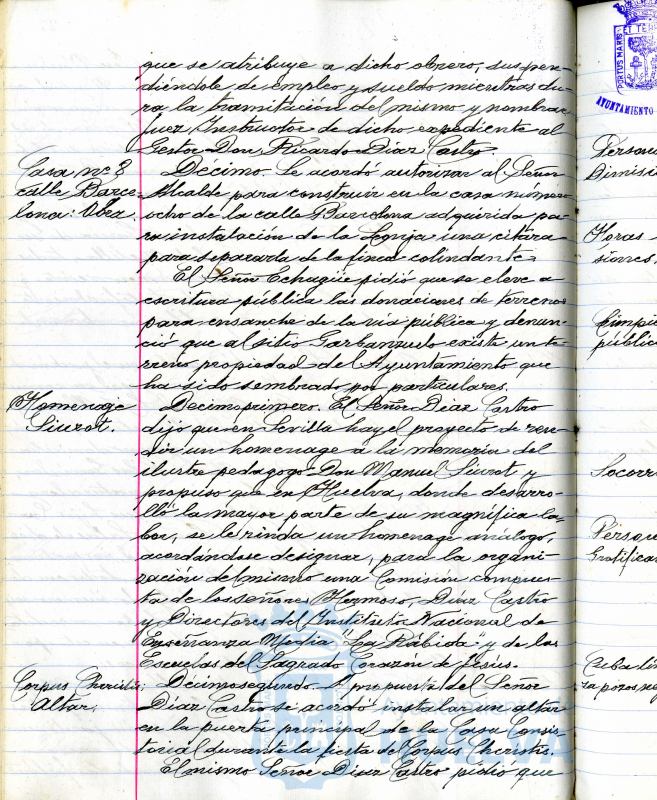 que se atribuye a dicho obrero, suspen-
diéndole de empleo y sueldo mientras du-
ra la tramitación del mismo y nombrar
Juez Instructor de dicho expediente al
Gestor Don Ricardo Díaz Castro.
Casa nº 8
calle Barce-
lona: Obra.
Décimo. Se acordó autorizar al Señor
Alcalde para construir en la casa número
ocho de la calle Barcelona adquirida pa-
ra instalación de la Lonja una citara
para separarla de la finca colindante.
El Señor Echagüe pidió que se eleve a
escritura pública las donaciones de terrenos
para ensanche de la vía pública y denun-
ció que al sitio Garbanzuelo existe un te-
rreno propiedad del Ayuntamiento que
ha sido sembrado por particulares.
Homenaje
Siurot.
Decimoprimero. El Señor Díaz Castro
dijo que en Sevilla hay el proyecto de ren-
dir un homenaje a la memoria del
ilustre pedagogo Don Manuel Siurot y
propuso que en Huelva, donde desarro-
lló la mayor parte de su magnífica la-
bor, se le rinda un homenage análogo,
acordándose designar, para la organi-
zación del mismo una Comisión compues-
ta de los señores Hermoso, Díaz Castro
y Directores del Instituto Nacional de
Enseñanza Media "La Rábida" y de las
Escuelas del Sagrado Corazón de Jesús.
Corpus Christi:
Altar.
Décimosegundo. A propuesta del Señor
Díaz Castro se acordó instalar un altar
en la puerta principal de la Casa Consis-
torial durante la fiesta del Corpus Christi.
El mismo Señor Díaz Castro pidió que
PORTUS MARIS ET TE
AYUNTAMIENTO
Person
Dimisi
Horas
siones.
Limpie
pública
Socorr
Person
Gratifica
Cuba
HUELVA